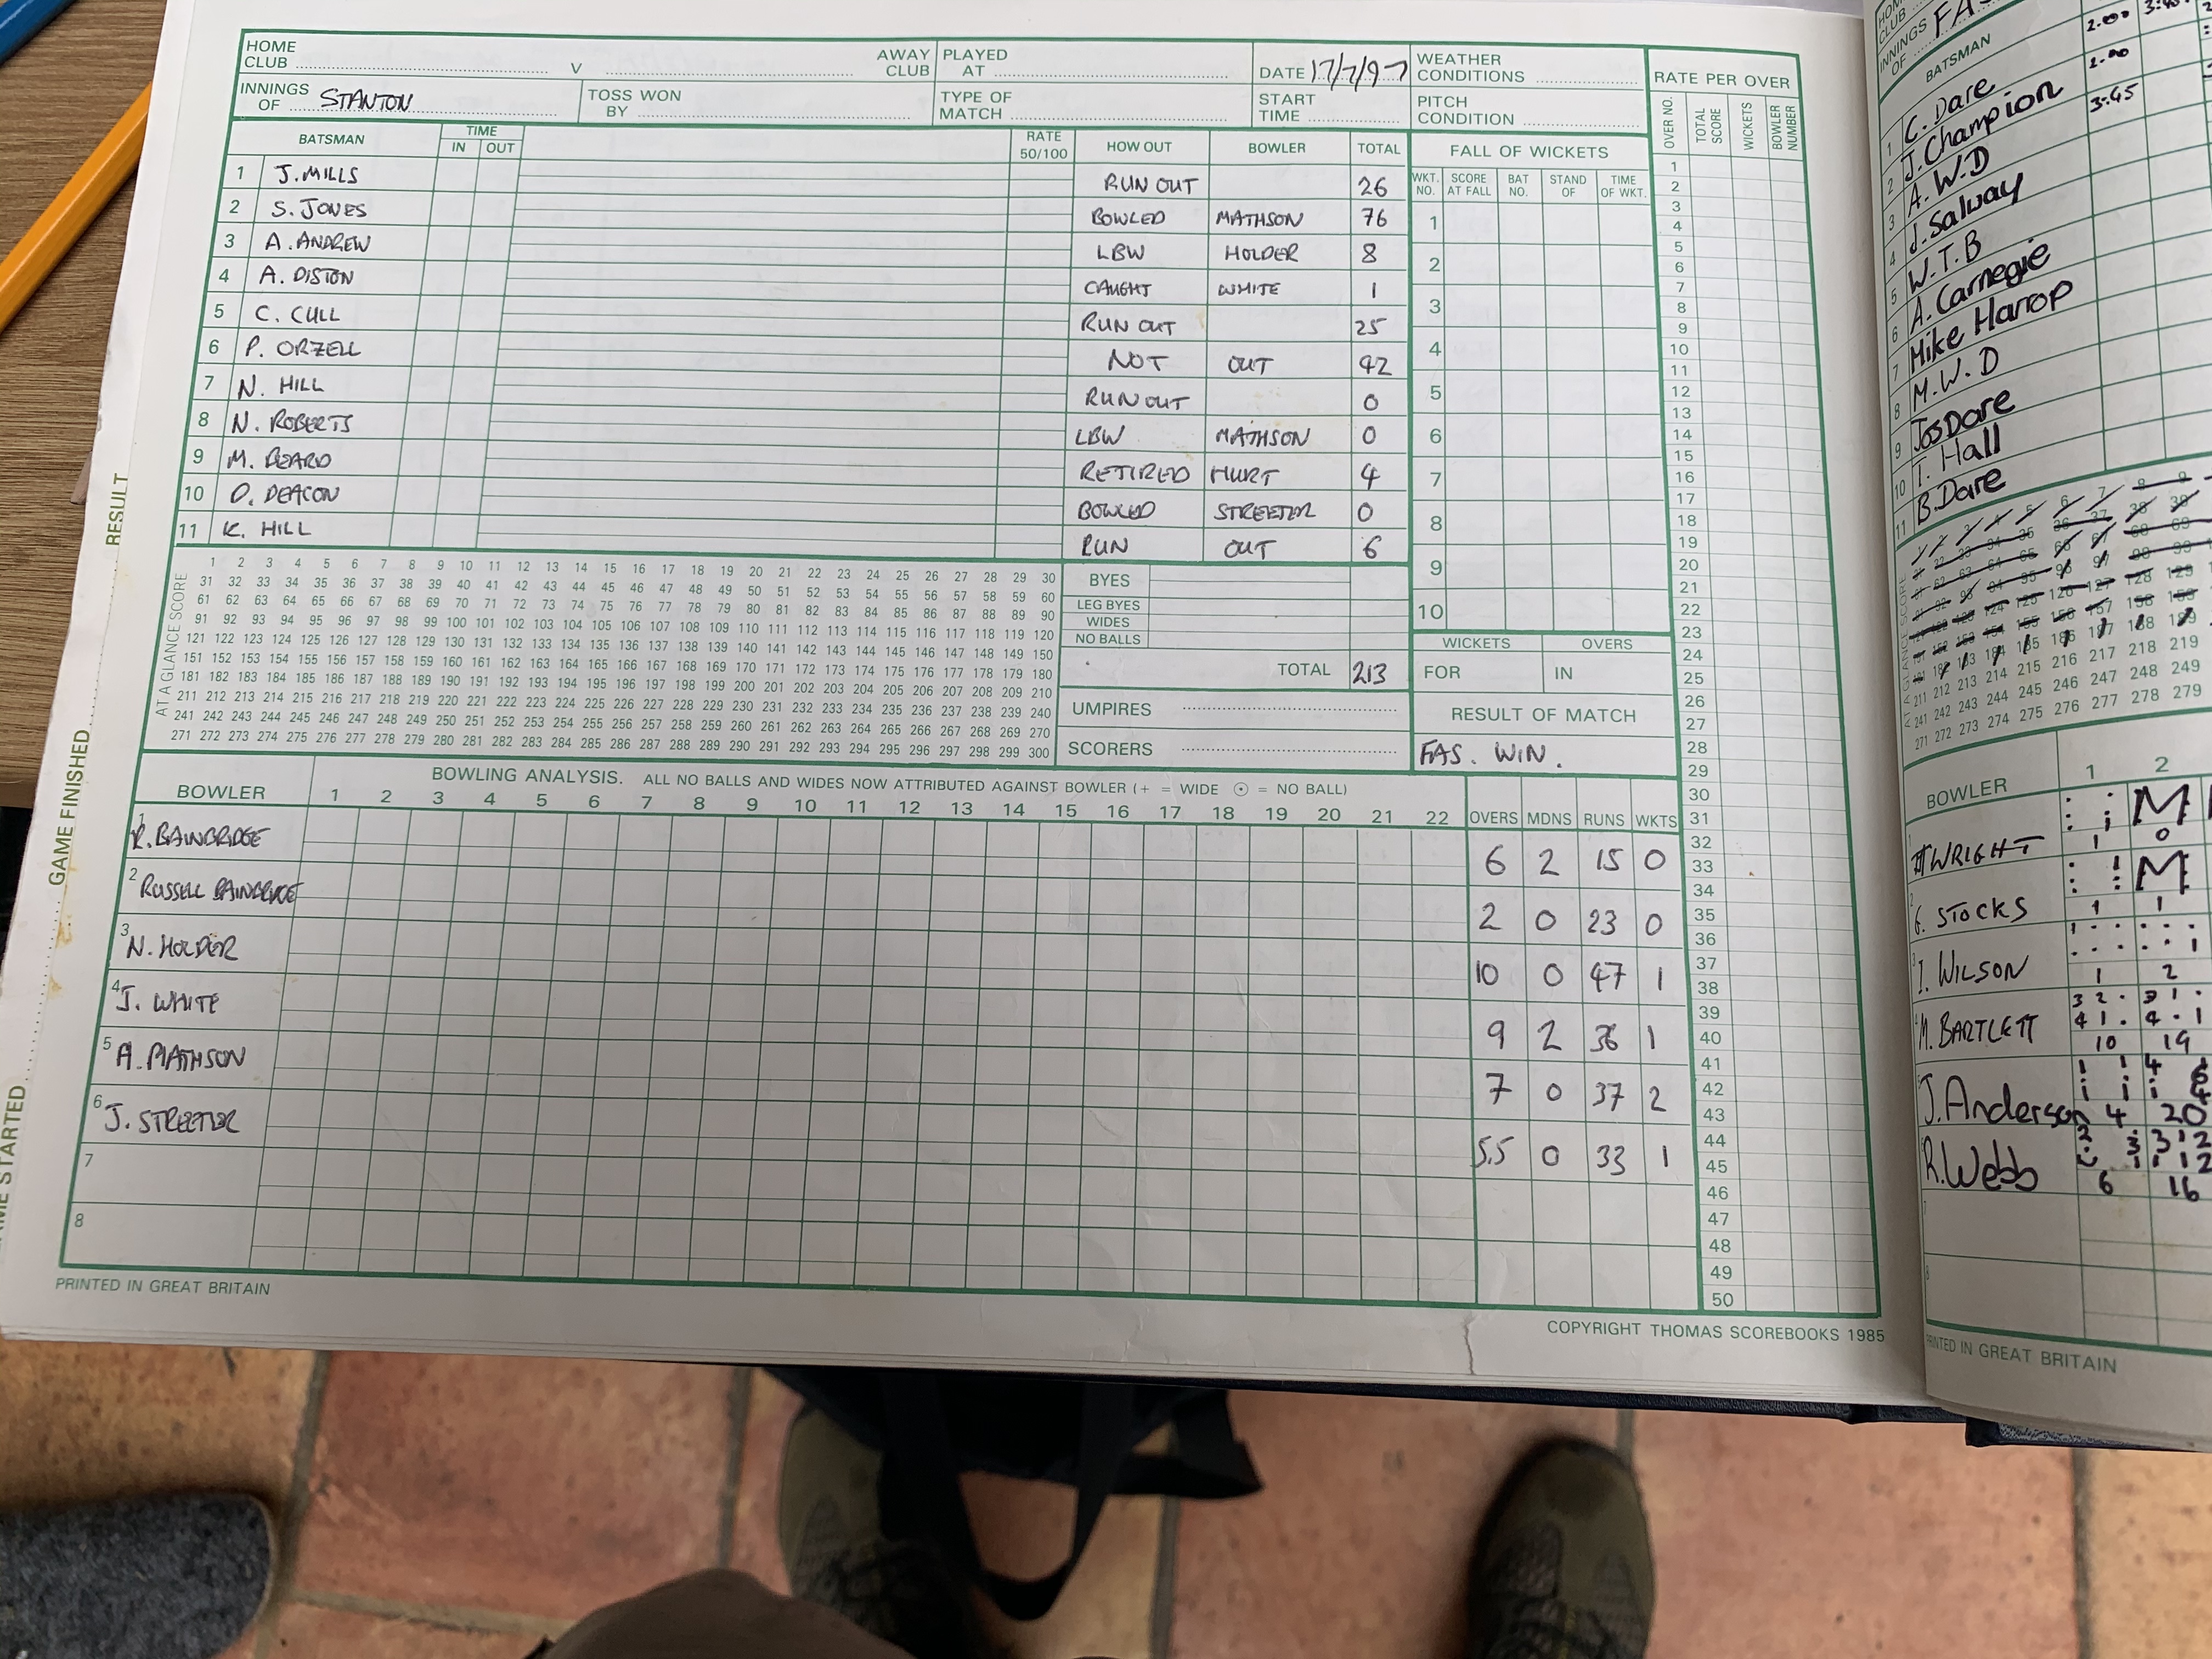 HOME CLUB ........ V ........ AWAY CLUB PLAYED AT ........ DATE 17/7/97 WEATHER CONDITIONS ........
INNINGS OF STANTON TOSS WON BY ........ TYPE OF MATCH ........ START TIME ........ PITCH CONDITION ........
RATE PER OVER
OVER NO. TOTAL SCORE WICKETS BOWLER NUMBER
BATSMAN TIME IN OUT RATE 50/100 HOW OUT BOWLER TOTAL
1 J. MILLS RUN OUT 26
2 S. JONES BOWLED MATHSON 76
3 A. ANDREW LBW HOLDER 8
4 A. DISTON CAUGHT WHITE 1
5 C. CULL RUN OUT 25
6 P. ORZELL NOT OUT 42
7 N. HILL RUN OUT 0
8 N. ROBERTS LBW MATHSON 0
9 M. BEARD RETIRED HURT 4
10 D. DEACON BOWLED STREETER 0
11 K. HILL RUN OUT 6
FALL OF WICKETS
WKT. NO. SCORE AT FALL BAT NO. STAND OF TIME OF WKT.
1
2
3
4
5
6
7
8
9
10
AT A GLANCE SCORE
1 2 3 4 5 6 7 8 9 10 11 12 13 14 15 16 17 18 19 20 21 22 23 24 25 26 27 28 29 30
31 32 33 34 35 36 37 38 39 40 41 42 43 44 45 46 47 48 49 50 51 52 53 54 55 56 57 58 59 60
61 62 63 64 65 66 67 68 69 70 71 72 73 74 75 76 77 78 79 80 81 82 83 84 85 86 87 88 89 90
91 92 93 94 95 96 97 98 99 100 101 102 103 104 105 106 107 108 109 110 111 112 113 114 115 116 117 118 119 120
121 122 123 124 125 126 127 128 129 130 131 132 133 134 135 136 137 138 139 140 141 142 143 144 145 146 147 148 149 150
151 152 153 154 155 156 157 158 159 160 161 162 163 164 165 166 167 168 169 170 171 172 173 174 175 176 177 178 179 180
181 182 183 184 185 186 187 188 189 190 191 192 193 194 195 196 197 198 199 200 201 202 203 204 205 206 207 208 209 210
211 212 213 214 215 216 217 218 219 220 221 222 223 224 225 226 227 228 229 230 231 232 233 234 235 236 237 238 239 240
241 242 243 244 245 246 247 248 249 250 251 252 253 254 255 256 257 258 259 260 261 262 263 264 265 266 267 268 269 270
271 272 273 274 275 276 277 278 279 280 281 282 283 284 285 286 287 288 289 290 291 292 293 294 295 296 297 298 299 300
BYES
LEG BYES
WIDES
NO BALLS
TOTAL 213
UMPIRES ........
SCORERS ........
WICKETS OVERS
FOR IN
RESULT OF MATCH
FAS. WIN.
BOWLING ANALYSIS. ALL NO BALLS AND WIDES NOW ATTRIBUTED AGAINST BOWLER (+ = WIDE ⊙ = NO BALL)
BOWLER 1 2 3 4 5 6 7 8 9 10 11 12 13 14 15 16 17 18 19 20 21 22 OVERS MDNS RUNS WKTS
1 R. BAINBRIDGE 6 2 15 0
2 RUSSELL BAINBRIDGE 2 0 23 0
3 N. HOLDER 10 0 47 1
4 J. WHITE 9 2 36 1
5 A. MATHSON 7 0 37 2
6 J. STREETER 5.5 0 33 1
7
8
1
2
3
4
5
6
7
8
9
10
11
12
13
14
15
16
17
18
19
20
21
22
23
24
25
26
27
28
29
30
31
32
33
34
35
36
37
38
39
40
41
42
43
44
45
46
47
48
49
50
PRINTED IN GREAT BRITAIN
COPYRIGHT THOMAS SCOREBOOKS 1985
RESULT
GAME FINISHED
STARTED
HOME CLUB
INNINGS OF
BATSMAN
1 C. Dare 2.00
2 J. Champion 2.00
3 A. W. D 3.45
4 J. Salway
5 W. T. B
6 A. Carnegie
7 Mike Harrop
8 M. W. D
9 Jos Dare
10 I. Hall
11 B. Dare
211 212 213 214 215 216 217 218 219
241 242 243 244 245 246 247 248 249
271 272 273 274 275 276 277 278 279
BOWLER 1 2
WRIGHT M
G. STOCKS M
I. WILSON 1 2
M. BARTLETT 10 19
J. Anderson 4 20
R. Webb 6 16
PRINTED IN GREAT BRITAIN